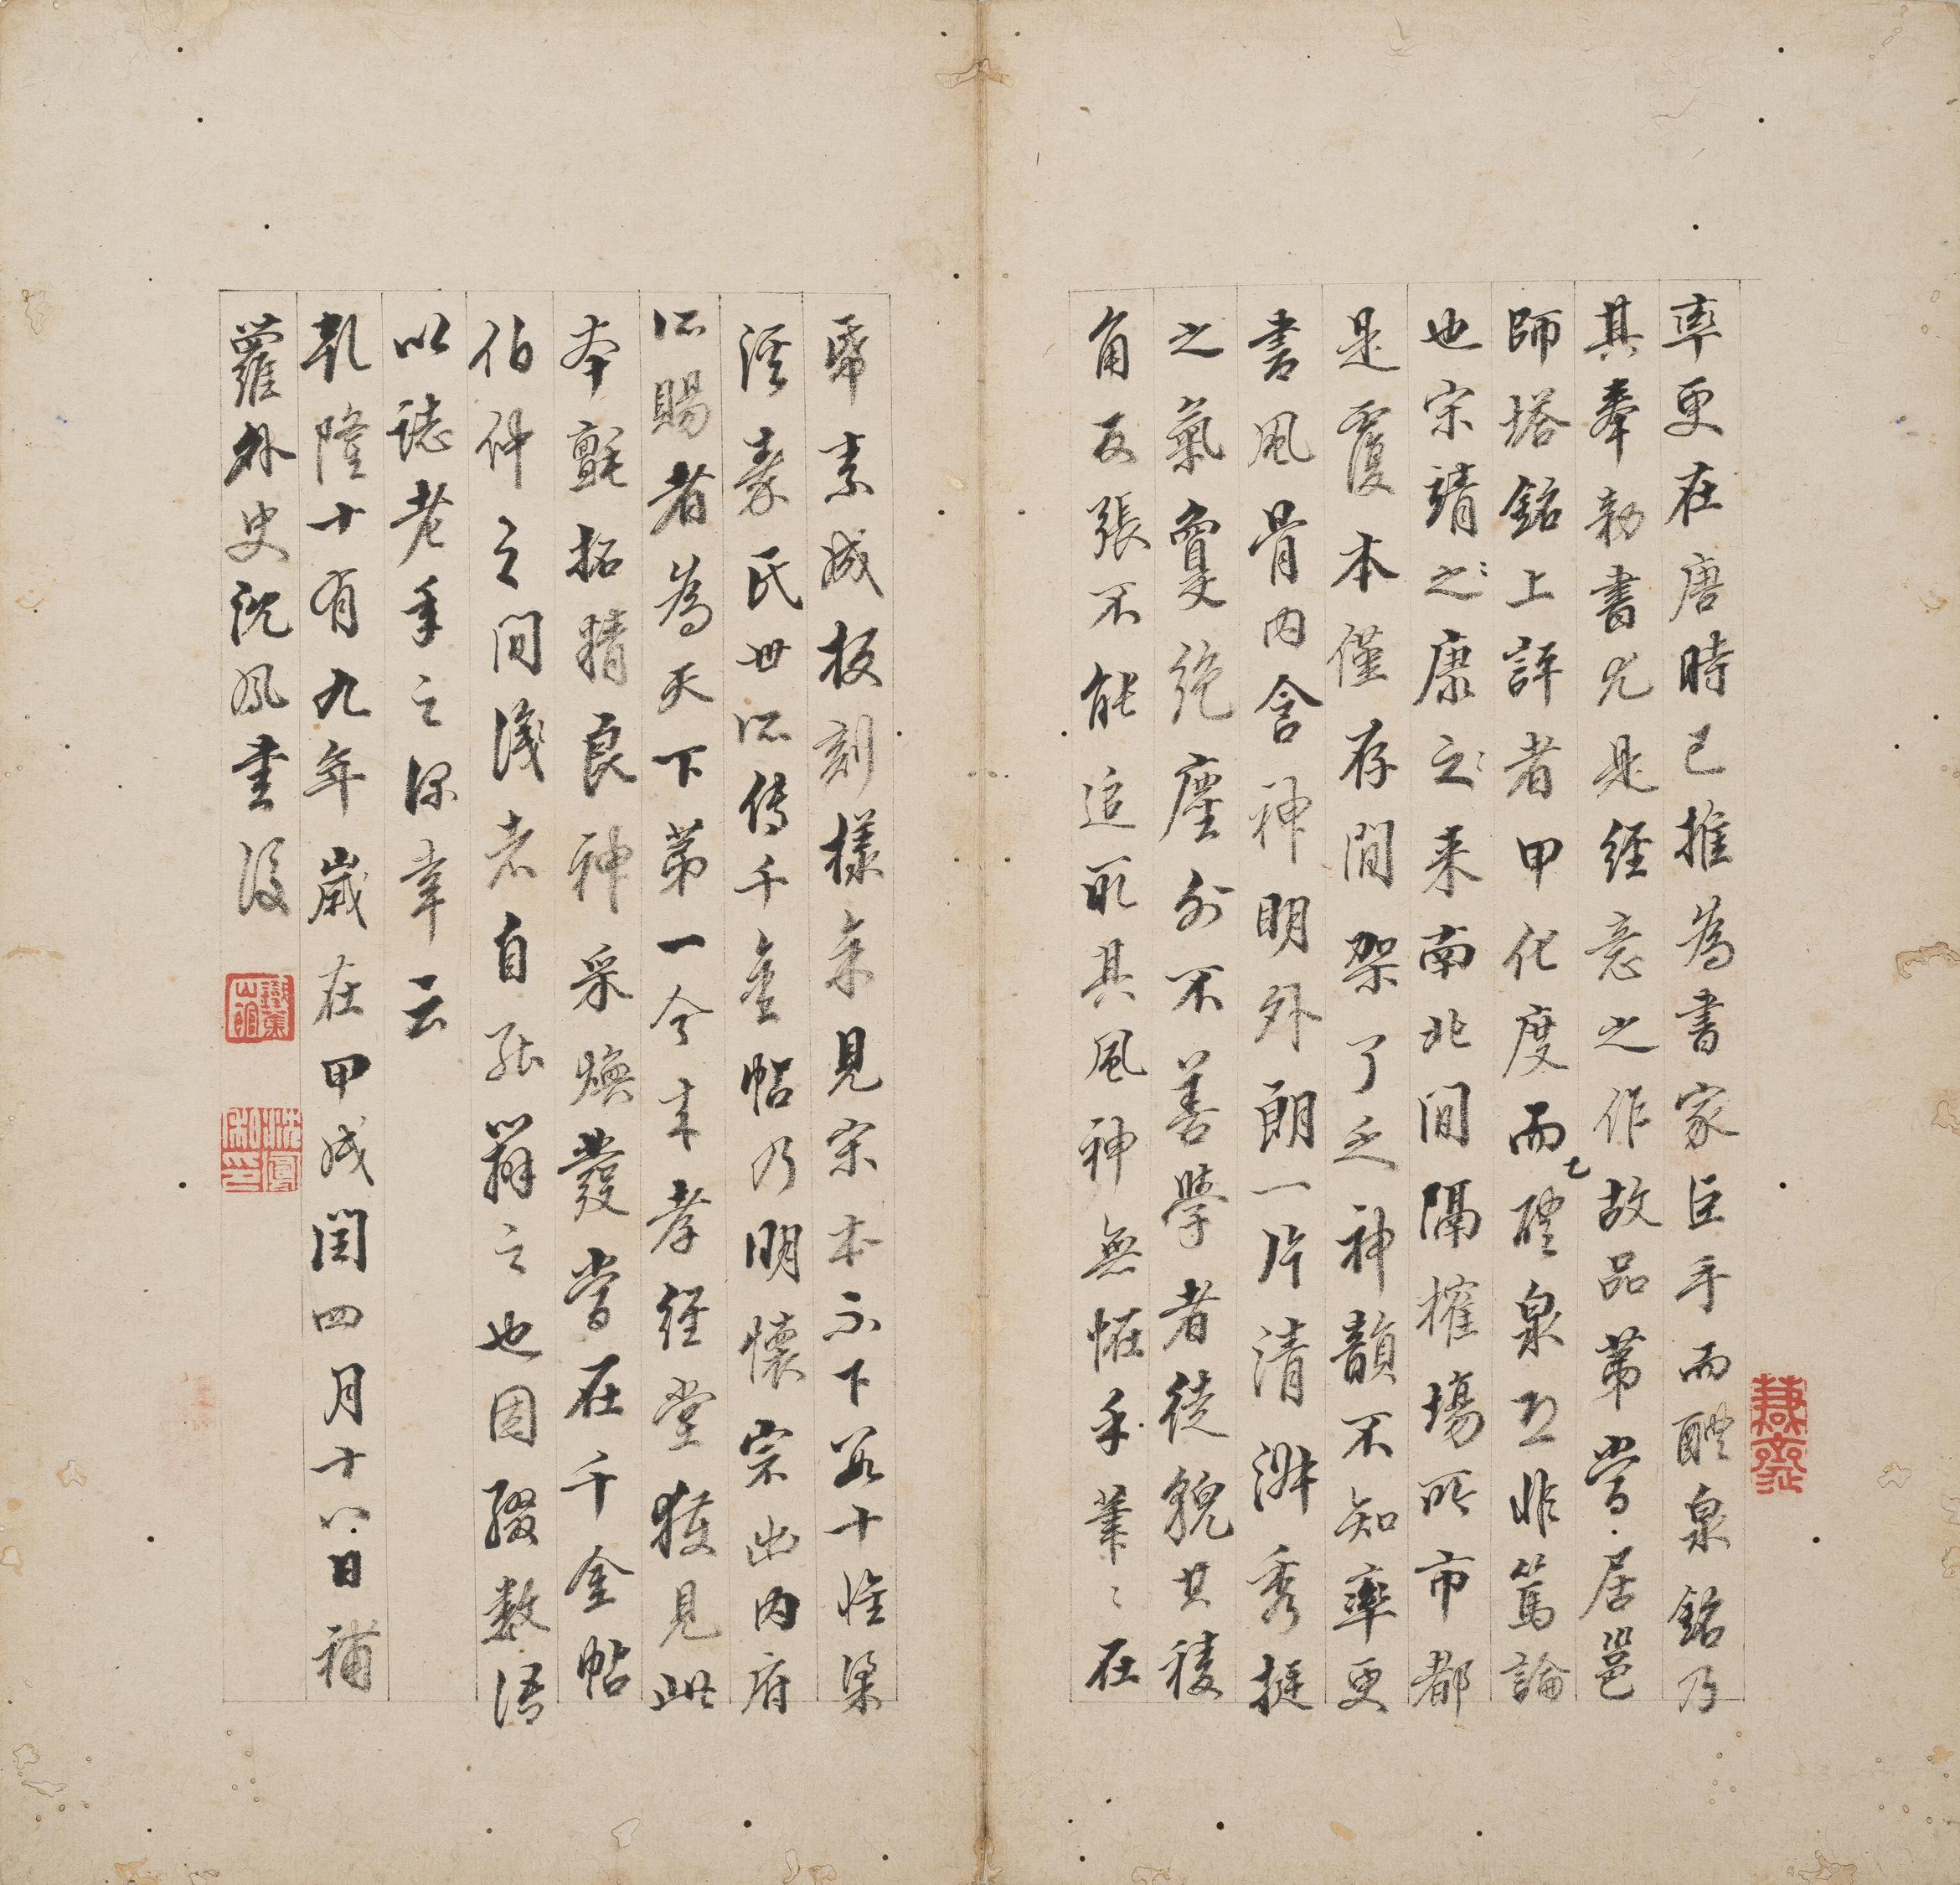 率更在唐時已推為書家臣手而醴泉銘乃
其奉勅書尤是經意之作故品第嘗居邕
師塔銘上評者甲化度而乙醴泉正非篤論
也宋靖之康之来南北間隔榷場所市都
是覆本僅存間架了乏神韻不知率更
書風骨內含神明外朗一片清泚秀挺
之氣敻絕塵外不善學者徒貌其稜
角反張不能追取其風神無恠乎筆〻在
帋素成板刻樣余見宋本不下數十惟梁
溪秦氏世所傳千金帖乃明懷宗出內府
所賜者為天下第一今來孝經堂獲見此
本氈拓精良神采煥發當在千金帖
伯仲之間識者自能辨之也因綴數語
以誌老年之深幸云
乾隆十有九年歲在甲戌閏四月十八日補
蘿外史沈鳳書後
沈鳳私印